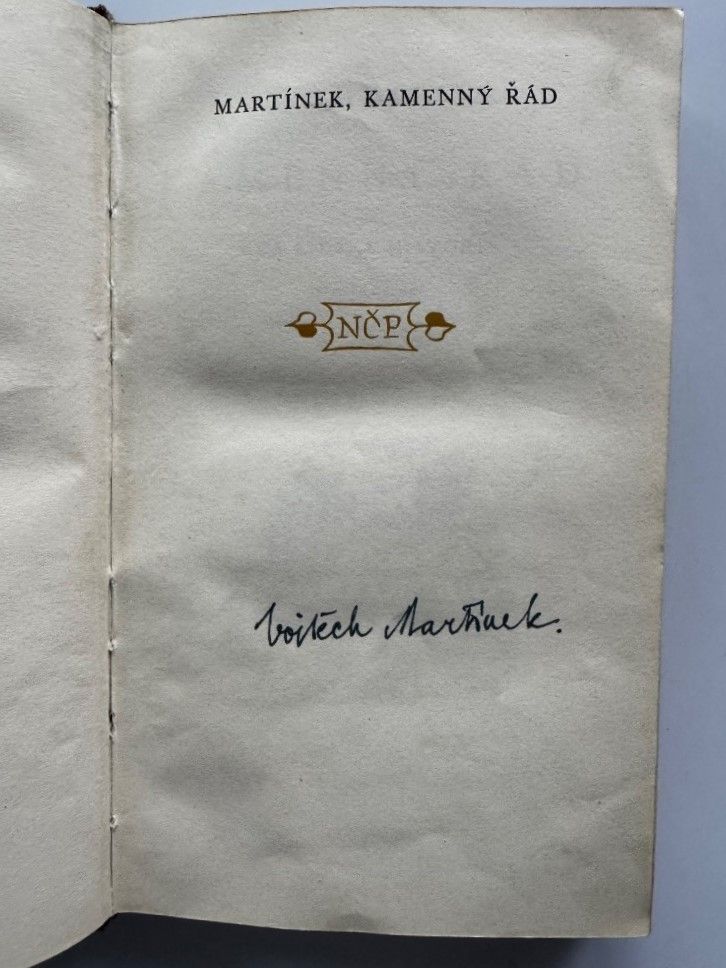 MARTÍNEK, KAMENNÝ ŘÁD
NČP
Vojtěch Martínek.